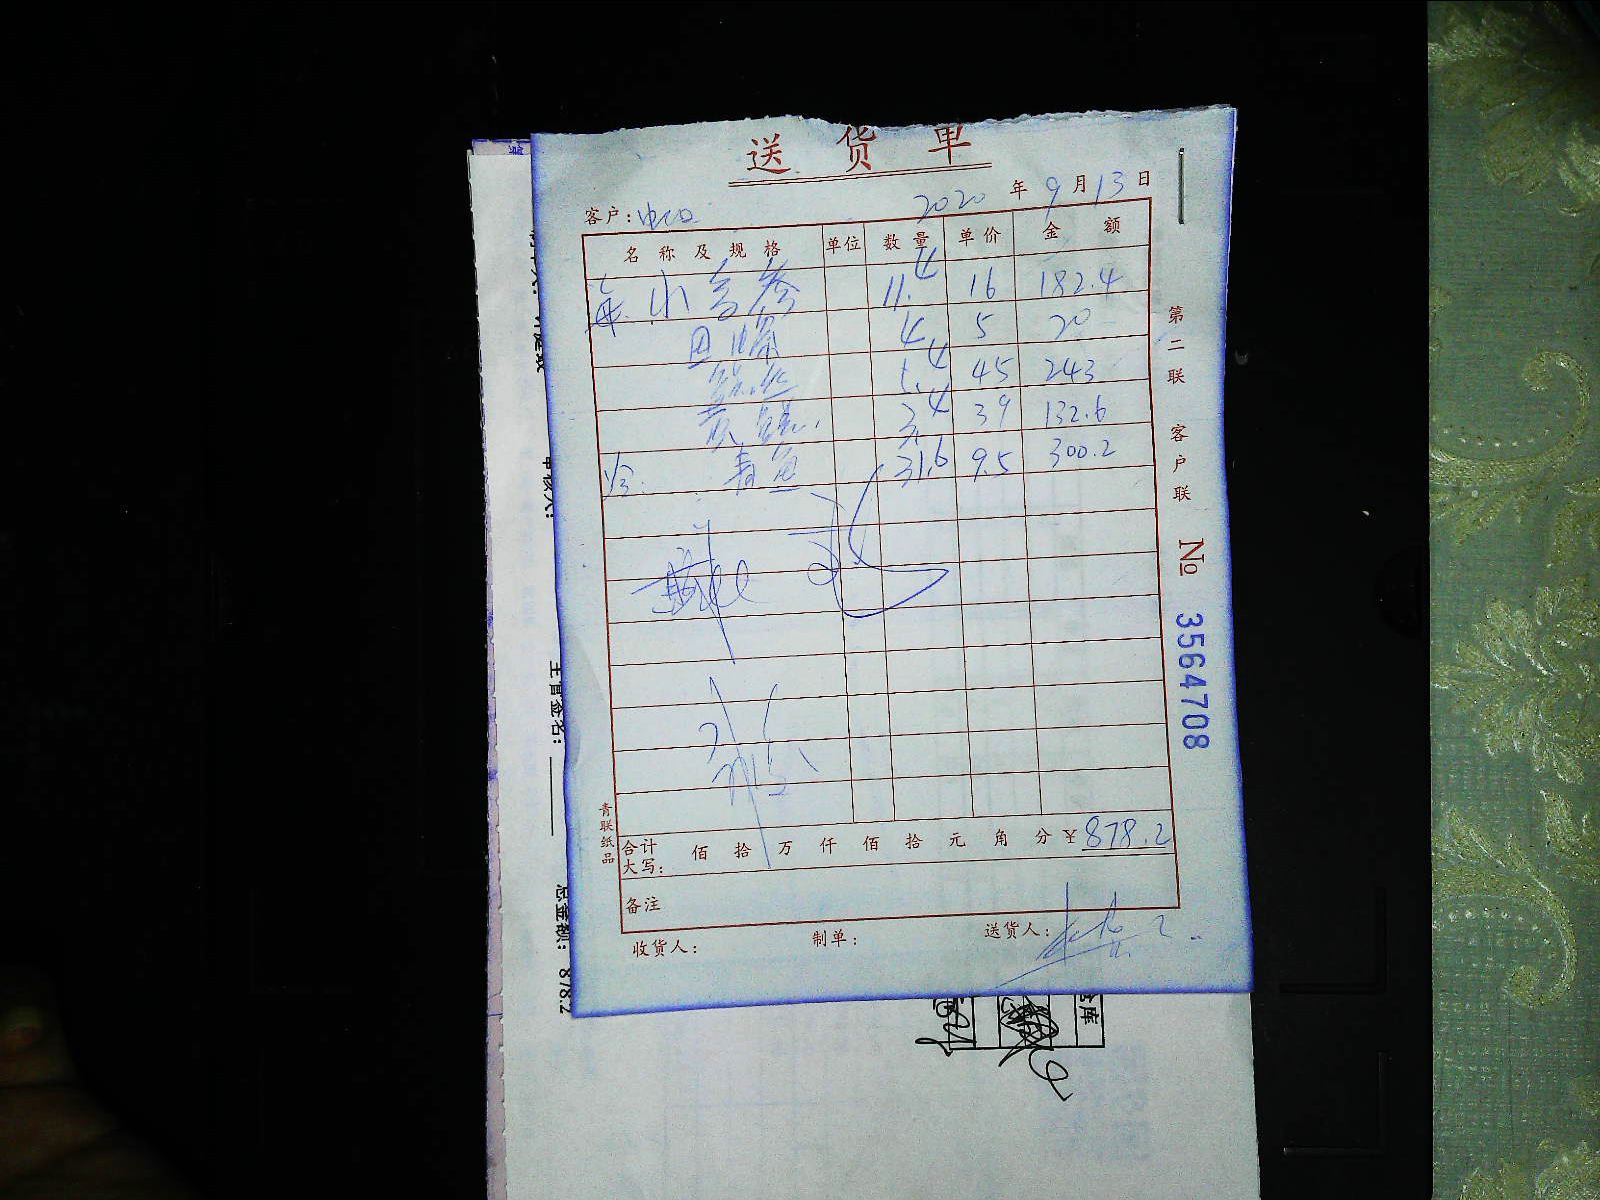 送货单
客户:
2020 年 9 月 13 日
名称及规格 单位 数量 单价 金额
小 11.4 16 182.4
田螺 4 5 20
5.4 45 243
黄 3.4 39 132.6
青鱼 31.6 9.5 300.2
合计大写: 佰 拾 万 仟 佰 拾 元 角 分 ¥ 878.2
备注
收货人: 制单: 送货人:
第二联 客户联 No 3564708
青联纸品
主管签名:
总金额: 878.2